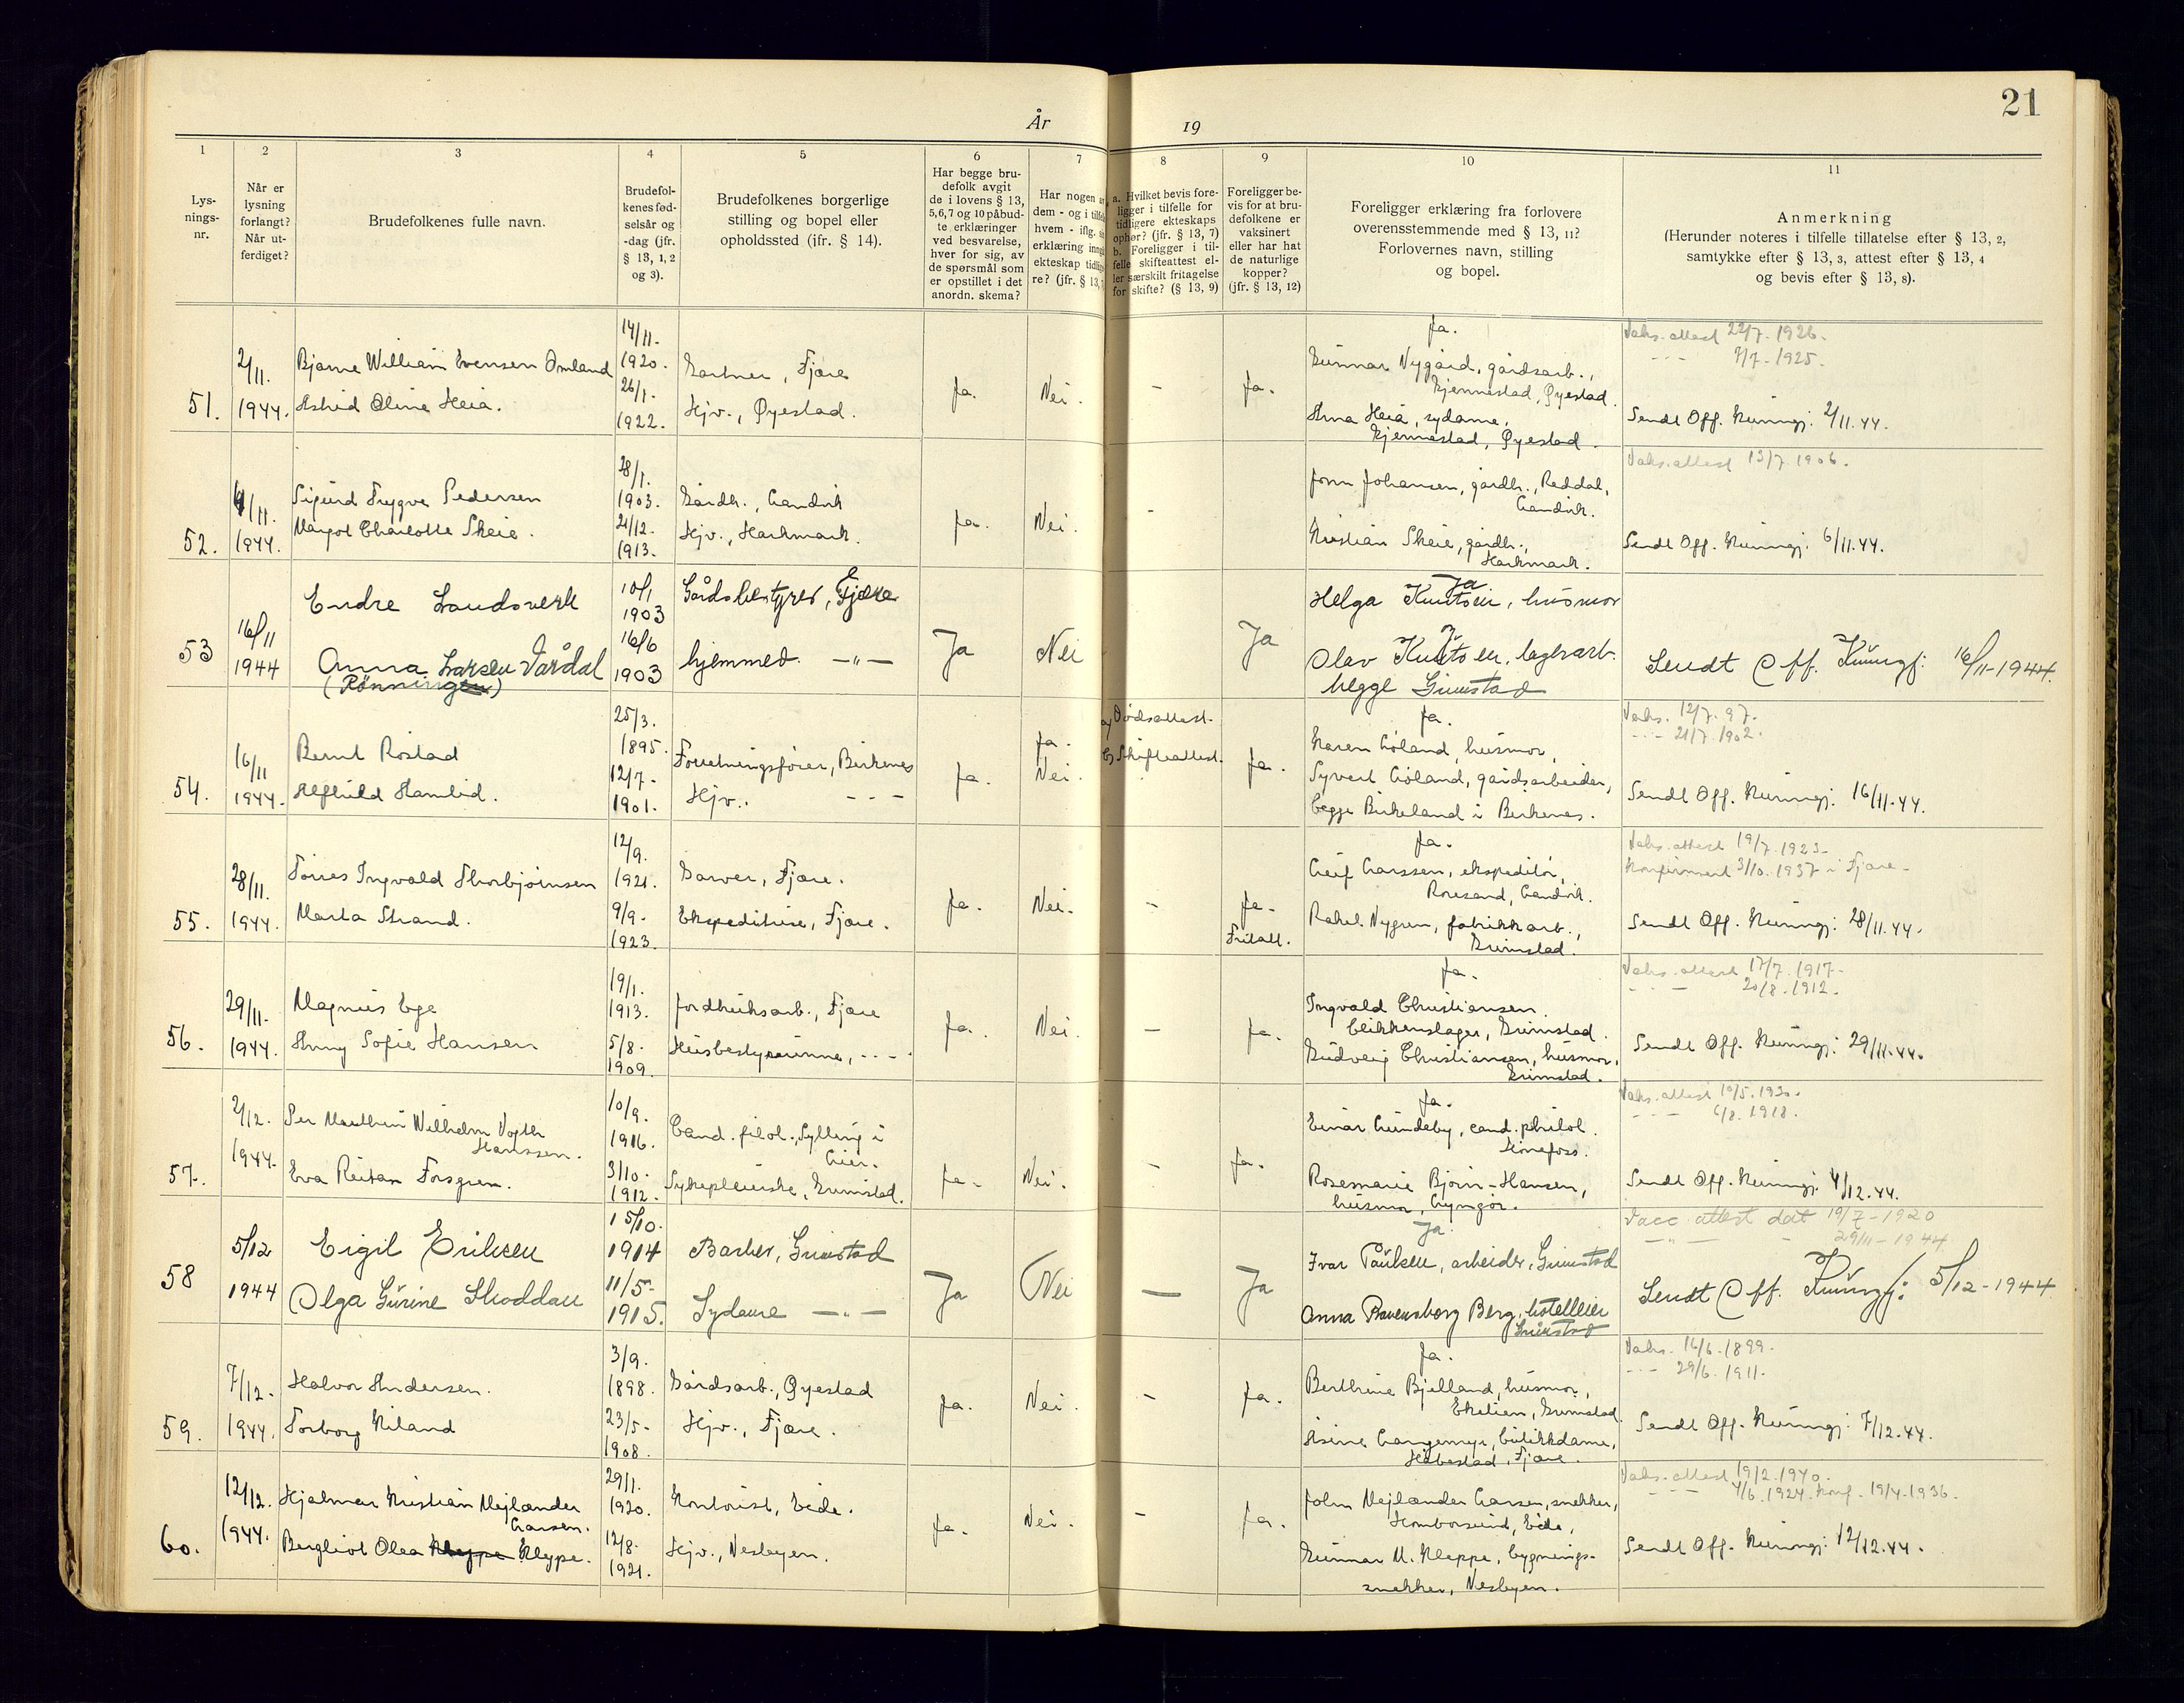 21
År 19
1 2 3 4 5 6 7 8 9 10 11
Lys-
nings-
nr.
Når er
lysning
forlangt?
Når ut-
ferdiget?
Brudefolkenes fulle navn.
Brudefol-
kenes fød-
selsår og
-dag (jfr.
§ 13, 1, 2
og 3).
Brudefolkenes borgerlige
stilling og bopel eller
opholdssted (jfr. § 14).
Har begge bru-
defolk avgit
de i lovens § 13,
5, 6, 7 og 10 påbud-
te erklæringer
ved besvarelse,
hver for sig, av
de spørsmål som
er opstillet i det
anordn. skema?
Har nogen
dem - og i
hvem - iflg.
erklæring
ekteskap
re? (jfr. § 13,
a. Hvilket bevis fore-
ligger i tilfelle for
tidligere ekteskaps
ophør? (jfr. § 13, 7)
b. Foreligger i til-
felle skifteattest el-
ler særskilt fritagelse
for skifte? (§ 13, 9)
Foreligger be-
vis for at bru-
defolkene er
vaksinert
eller har hat
de naturlige
kopper?
(jfr. § 13, 12)
Foreligger erklæring fra forlovere
overensstemmende med § 13, 11?
Forlovernes navn, stilling
og bopel.
Anmerkning
(Herunder noteres i tilfelle tillatelse efter § 13, 2,
samtykke efter § 13, 3, attest efter § 13, 4
og bevis efter § 13, 8).
51.
2/11.
1944.
Bjarne William Evensen Omland
Astrid Oline Heia.
14/11.
1920.
26/1.
1922.
Gartner, Fjære
Hjv., Øyestad.
Ja.
Nei.
-
Ja.
Ja.
Gunnar Nygård, gårdsarb.,
Bjennestad, Øyestad.
Anna Heia, sydame,
Bjennestad, Øyestad.
Vaks. attest 22/7. 1926.
- - - 7/7 - 1925.
Sendt Off. Kunngj: 2/11. 44.
52.
6/11.
1944.
Sigurd Trygve Pedersen
Margot Charlotte Skeie.
28/1.
1903.
21/12.
1913.
Gårdb., Landvik
Hjv., Harkmark.
Ja.
Nei.
-
Jorm Johansen, gårdb., Reddal,
Landvik.
Kristian Skeie, gårdb.,
Harkmark.
Vaks. attest 13/7. 1906.
Sendt Off. Kunngj: 6/11. 44.
53
16/11
1944
Endre Landsverk
Anna Larsen Vårdal
(Rønningen)
10/1
1903
16/6
1903
Gårdsbestyrer, Fjære
hjemmev. -"-
Ja
Nei
Ja
Ja
Helga Knutsen, husmor
Olav Knutsen, lagerarb.
begge Grimstad
Sendt Off. Kunngj: 16/11-1944.
54.
16/11
1944.
Bernt Rostad
Alfhild Hamlid.
25/3.
1895.
12/7-
1901.
Forretningsfører, Birkenes
Hjv.. - - -
Ja.
Ja.
Nei.
a) Dødsattest.
b) Skifteattest.
Ja.
Ja.
Karen Løland, husmor,
Syvert Løland, gårdsarbeider,
begge Birkeland i Birkenes.
Vaks. 12/7. 97.
- - - 21/7. 1902.
Sendt Off. Kunngj: 16/11. 44.
55.
28/11.
1944.
Torres Ingvald Thorbjørnsen
Marta Strand.
12/9.
1921.
9/9-
1923.
Garver, Fjære.
Ekspeditrise, Fjære.
Ja.
Nei.
-
Ja.
Fritatt.
Ja.
Leif Larssen, ekspeditør,
Roresand, Landvik.
Rakel Nygren, fabrikkarb.,
Grimstad.
Vaks. attest 19/7. 1923.
Konfirmert 3/10. 1937 i Fjære.
Sendt Off. Kunngj: 28/11. 44.
56.
29/11.
1944.
Magnus Ege
Anny Sofie Hansen
19/1.
1913.
5/8.
1909.
Jordbruksarb., Fjære
Husbestyrerinne, - - -
Ja.
Nei
-
Ja.
Ja.
Ingvald Christiansen.
blikkenslager, Grimstad.
Gudveig Christiansen, husmor,
Grimstad.
Vaks. attest 17/7. 1917.
- - - 20/8. 1912.
Sendt Off. Kunngj: 29/11. 44.
57.
2/12.
1944.
Per Mauthin Wilhelm Vogth
Hanssen.
Eva Reitan Forsgren.
10/9.
1916.
3/10.
1912.
Cand. filol., Sylling i
Lier.
Sykepleierske, Grimstad.
Ja.
Nei.
-
Ja.
Ja.
Einar Lundeby, cand. philol.
Hønefoss.
Rosemarie Bjørn-Hansen,
husmor, Lyngør.
Vaks. attest 10/5. 1920.
- - - 6/8. 1918.
Sendt Off. Kunngj: 4/12. 44.
58
5/12
1944
Eigil Eriksen
Olga Gurine Skoddan
15/10.
1914
11/5-
1915.
Barber, Grimstad
Sydame -"-
Ja
Nei
-
Ja
Ja
Ivar Paulsen, arbeider, Grimstad
Anna Ravensborg Berg, hotelleier
Grimstad
Vacc. attest dat 19/7-1920
-"- - 29/11-1944
Sendt Off. Kunngj: 5/12-1944
59.
7/12.
1944.
Halvor Andersen.
Torborg Niland
3/9.
1898.
23/5-
1908.
Gårdsarb., Øyestad
Hjv., Fjære.
Ja.
Nei.
-
Ja.
Ja.
Berthine Bjelland, husmor,
Ekelien, Grimstad.
Asine Langemyr, butikkdame,
Håbestad, Fjære.
Vaks. 16/6. 1899.
- - - 29/6. 1911.
Sendt Off. Kunngj: 7/12. 44.
60.
12/12.
1944.
Hjalmar Kristian Mejlænder
Larsen.
Bergliot Olea Kleppe Kleppe.
29/1.
1920.
12/8.
1921.
Kontorist, Eide.
Hjv., Nesbyen.
Ja.
Nei.
-
Ja.
John Mejlænder Larsen, snekker,
Homborsund, Eide,
Gunnar M. Kleppe, bygnings-
snekker, Nesbyen.
Vaks. attest 19/2. 1940.
- - - 4/6. 1924. Konf. 19/4. 1936.
Sendt Off. Kunngj: 12/12. 44.